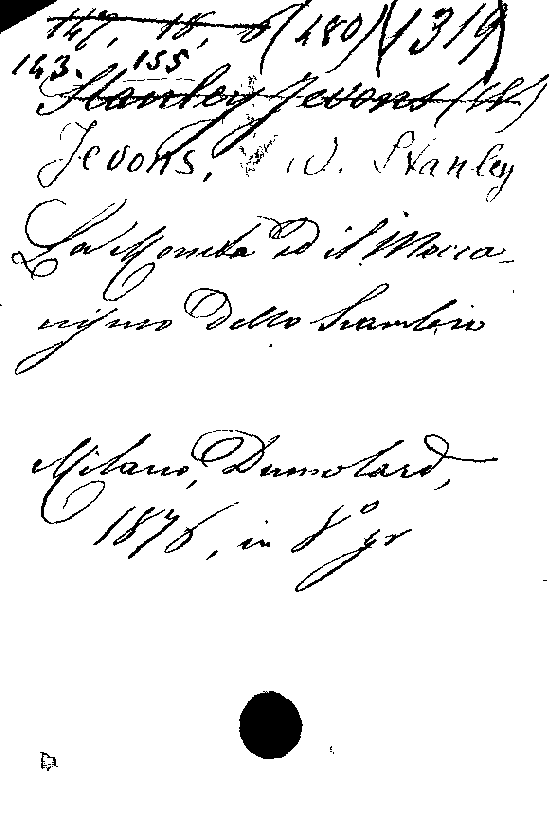 147, 18, 8 (480) (1319)
143. 155
Stanley Jevons (W)
Jevons, W. Stanley
La Moneta ed il Mecca-
nismo dello Scambio
Milano, Dumolard,
1876, in 8° gr